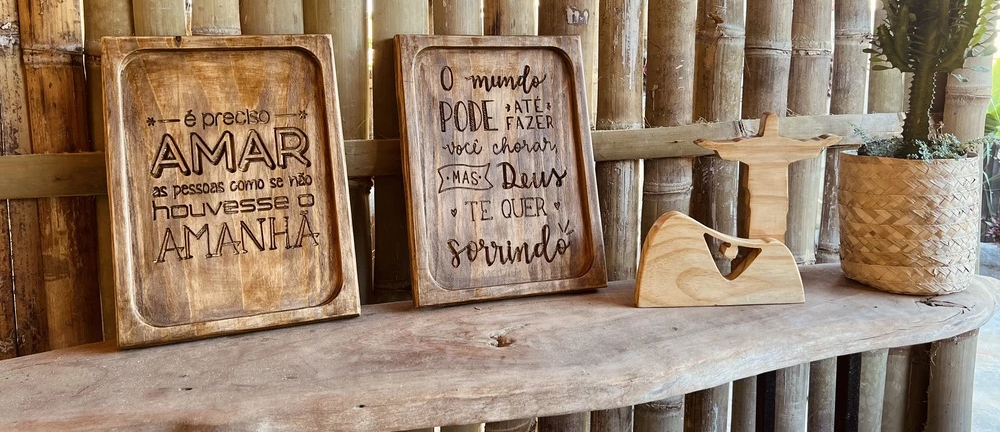 é preciso
AMAR
as pessoas como se não
houvesse o
AMANHÃ
O mundo
PODE ATÉ
FAZER
você chorar,
MAS Deus
TE QUER
sorrindo